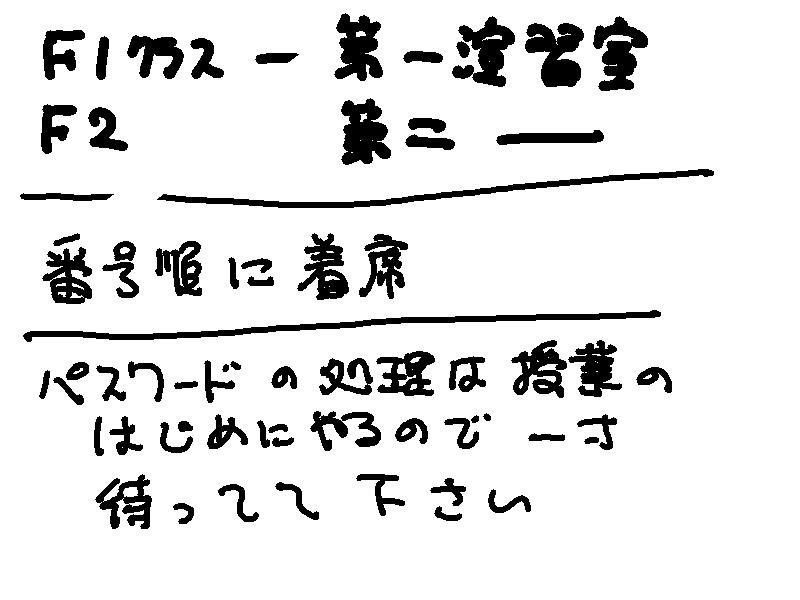 F1クラス ー 第一演習室
F2 第二 ――
番号順に着席
パスワードの処理は授業の
はじめにやるので一寸
待ってて下さい